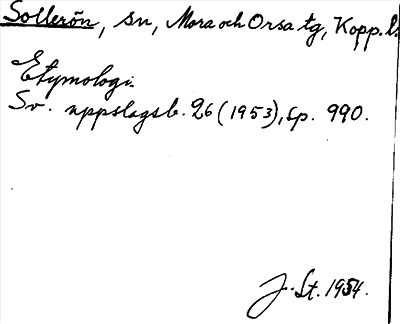 Sollerön, sn, Mora och Orsa tg, Kopp. l.
Etymologi.
Sv. uppslagsb. 26 (1953), sp. 990.
J. St. 1954.